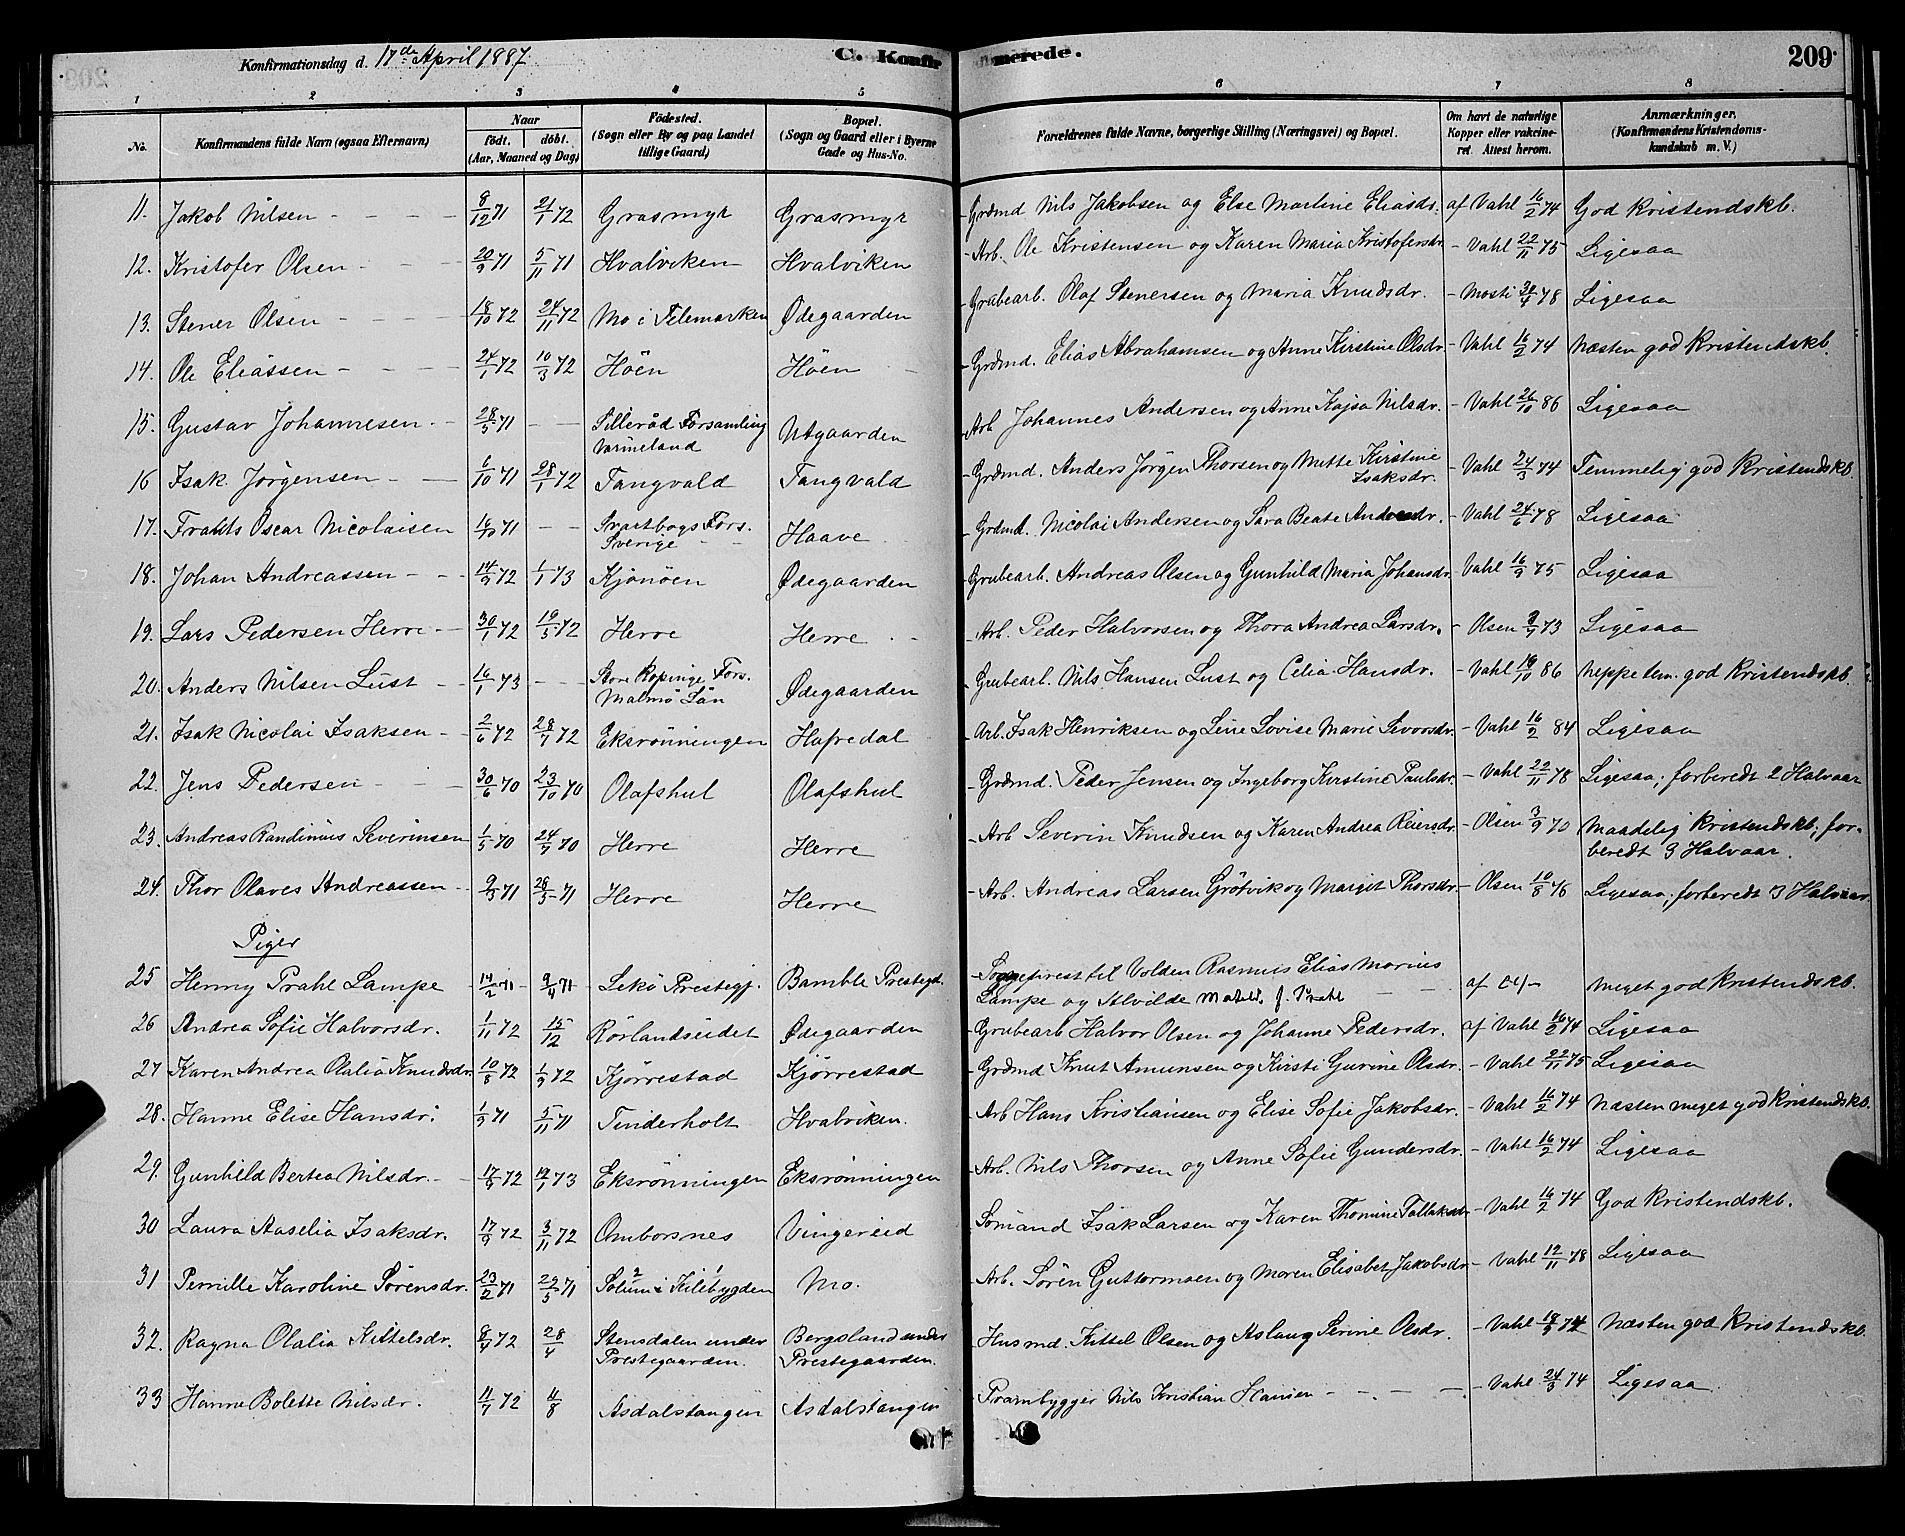 Konfirmationsdag d. 17de April 1887
C. Konfirmerede.
209
1 2 3 4 5 6 7 8
No. Konfirmandens fulde Navn (ogsaa Efternavn) Naar født. døbt. (Aar, Maaned og Dag) Fødested. (Sogn eller By og paa Landet tillige Gaard) Bopæl. (Sogn og Gaard eller i Byerne Gade og Hus-No. Forældrenes fulde Navne, borgerlige Stilling (Næringsvei) og Bopæl. Om havt de naturlige Kopper eller vakcineret. Attest herom. Anmærkninger. (Konfirmandens Kristendomskundskab m. V.)
11. Jakob Nilsen 8/12 71 21/1 72 Grasmyr Grasmyr Grdmd Nils Jakobsen og Else Martine Eliasdr. af Vahl 16/2 74 God Kristendskb.
12. Kristofer Olsen 20/9 71 5/11 71 Hvalviken Hvalviken Arb. Ole Kristensen og Karen Maria Kristofersdr. Vahl 22/11 75 Ligesaa
13. Stener Olsen 18/10 72 24/11 72 Mo i Telemarken Ødegaarden Grubearb. Olaf Stenersen og Maria Knudsdr. Mosti 30/4 78 Ligesaa
14. Ole Eliassen 24/1 72 10/3 72 Höen Höen Grdmd. Elias Abrahamsen og Anne Kirstine Olsdr. Vahl 16/2 74 Næsten god Kristendskb.
15. Gustav Johannesen 28/5 71 — Silleröd Forsamling Värmeland Utgaarden Arb Johannes Andersen og Anne Kajsa Nilsdr. Vahl 26/10 86 Ligesaa
16 Isak Jörgensen 6/10 71 28/1 72 Tangvald Tangvald Grdmd. Anders Jörgen Thorsen og Mette Kirstine Isaksdr. Vahl 24/3 74 Temmelig god Kristendskb.
17. Frants Oscar Nicolaisen 16/10 71 — Svartbogs Fors. Sverige Haave Grdmd. Nicolai Andersen og Sara Beate Andersdr. Vahl 24/6 78 Ligesaa
18. Johan Andreassen 14/9 72 1/1 73 Kjönöen Ødegaarden Grubearb. Andreas Olsen og Gunhild Maria Johansdr. Vahl 16/9 75 Ligesaa
19. Lars Pedersen Herre 30/1 72 19/5 72 Herre Herre Arb. Peder Halvorsen og Thora Andrea Larsdr. Olsen 73 Ligesaa
20. Anders Nilsen Lust 16/1 73 — Store Kopinge Fors. Malmö Län Ødegaarden Grubearb. Nils Hansen Lust og Celia Hansdr. Vahl 19/10 86 Neppe tem. god Kristendskb.
21. Isak Nicolai Isaksen 2/6 72 28/7 72 Eksrönningen Hafredal Arb. Isak Henriksen og Line Lovise Marie Sivorsdr. Vahl 16/2 84 Ligesaa
22. Jens Pedersen 30/6 70 23/10 70 Olafshul Olafshul Grdmd. Peder Jensen og Ingeborg Kirstine Paulsdr. Vahl 22/11 78 Ligesaa; forberedt 2 Halvaar
23. Andreas Randinius Severinsen 1/5 70 24/7 70 Herre Herre Arb Severin Knudsen og Karen Andrea Reiersdr. Olsen 3/9 70 Maadelig Kristendskb; forberedt 3 Halvaar.
24. Thor Olaves Andreassen 9/3 71 28/5 71 Herre Herre Arb. Andreas Larsen Grötvik og Margit Thorsdr. Olsen 10/8 76 Ligesaa; forberedt 3 Halvaar
Piger
25 Henny Prahl Lampe 14/2 71 9/4 71 Lekö Prestegj. Bamble Prestegd. Sogneprest til Volden Rasmus Elias Marius Lampe og Alvilde Mathild. f. Prahl af Meget god Kristendskb.
26 Andrea Sofie Halvorsdr. 1/11 72 15/12 Rörlandseidet Ødegaarden Grubearb Halvor Olsen og Johanne Pedersdr. af Vahl 16/2 74 Ligesaa
27 Karen Andrea Olalia Knudsdr. 10/8 72 1/9 72 Kjörrestad Kjörrestad Grdmd Knut Amunsen og Kirsti Gurine Olsdr. Vahl 22/11 75 Ligesaa
28. Hanne Elise Hansdr. 1/9 71 5/11 71 Tinderholt Hvalviken. Arb Hans Kristiansen og Elise Sofie Jakobsdr. Vahl 16/2 74 Næsten meget god Kristendskb.
29. Gunhild Bertea Nilsdr. 17/8 72 12/1 73 Eksrönningen Eksrönningen Arb. Nils Thorsen og Anne Sofie Gundersdr. Vahl 16/2 74 Ligesaa
30 Laura Aaselia Isaksdr. 17/9 72 3/11 72 Omborsnes Vingereid Sömand Isak Larsen og Karen Thomine Tallaksdr. Vahl 16/2 74 God Kristendskb.
31 Pernille Karoline Sörensdr. 23/2 71 29/5 71 Solum i Kilebygden Mo. Arb. Sören Guttormsen og Maren Elisabet Jakobsdr. Vahl 12/11 78 Ligesaa
32. Ragna Olalia Kittelsdr. 8/4 72 28/4 Stensdalen under Prestegaarden. Bergsland under Prestegaarden. Husmd. Kittel Olsen og Aslaug Serine Olsdr. Vahl 74 Næsten god Kristendskb.
33 Hanne Bolette Nilsdr. 11/7 72 11/8 Asdalstangen Asdalstangen Prambygger Nils Kristian Hansen Vahl 24/3 74 Ligesaa.